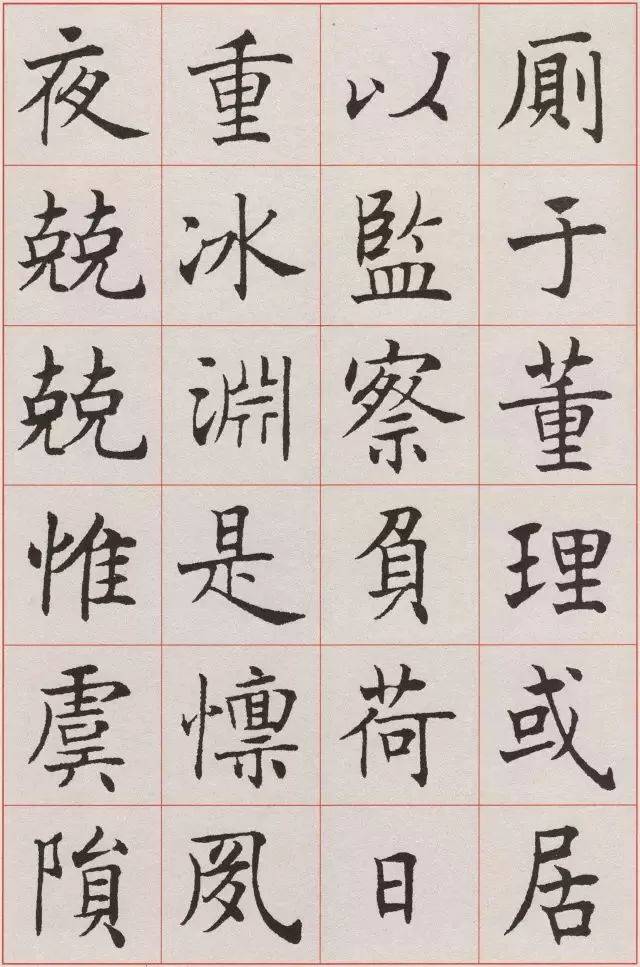 厠于董理或居
以監察負荷日
重冰淵是懔夙
夜兢兢惟虞隕